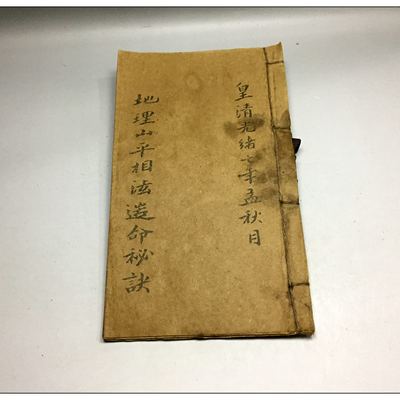 皇清光緒七年孟秋月
地理山平相法造命秘訣